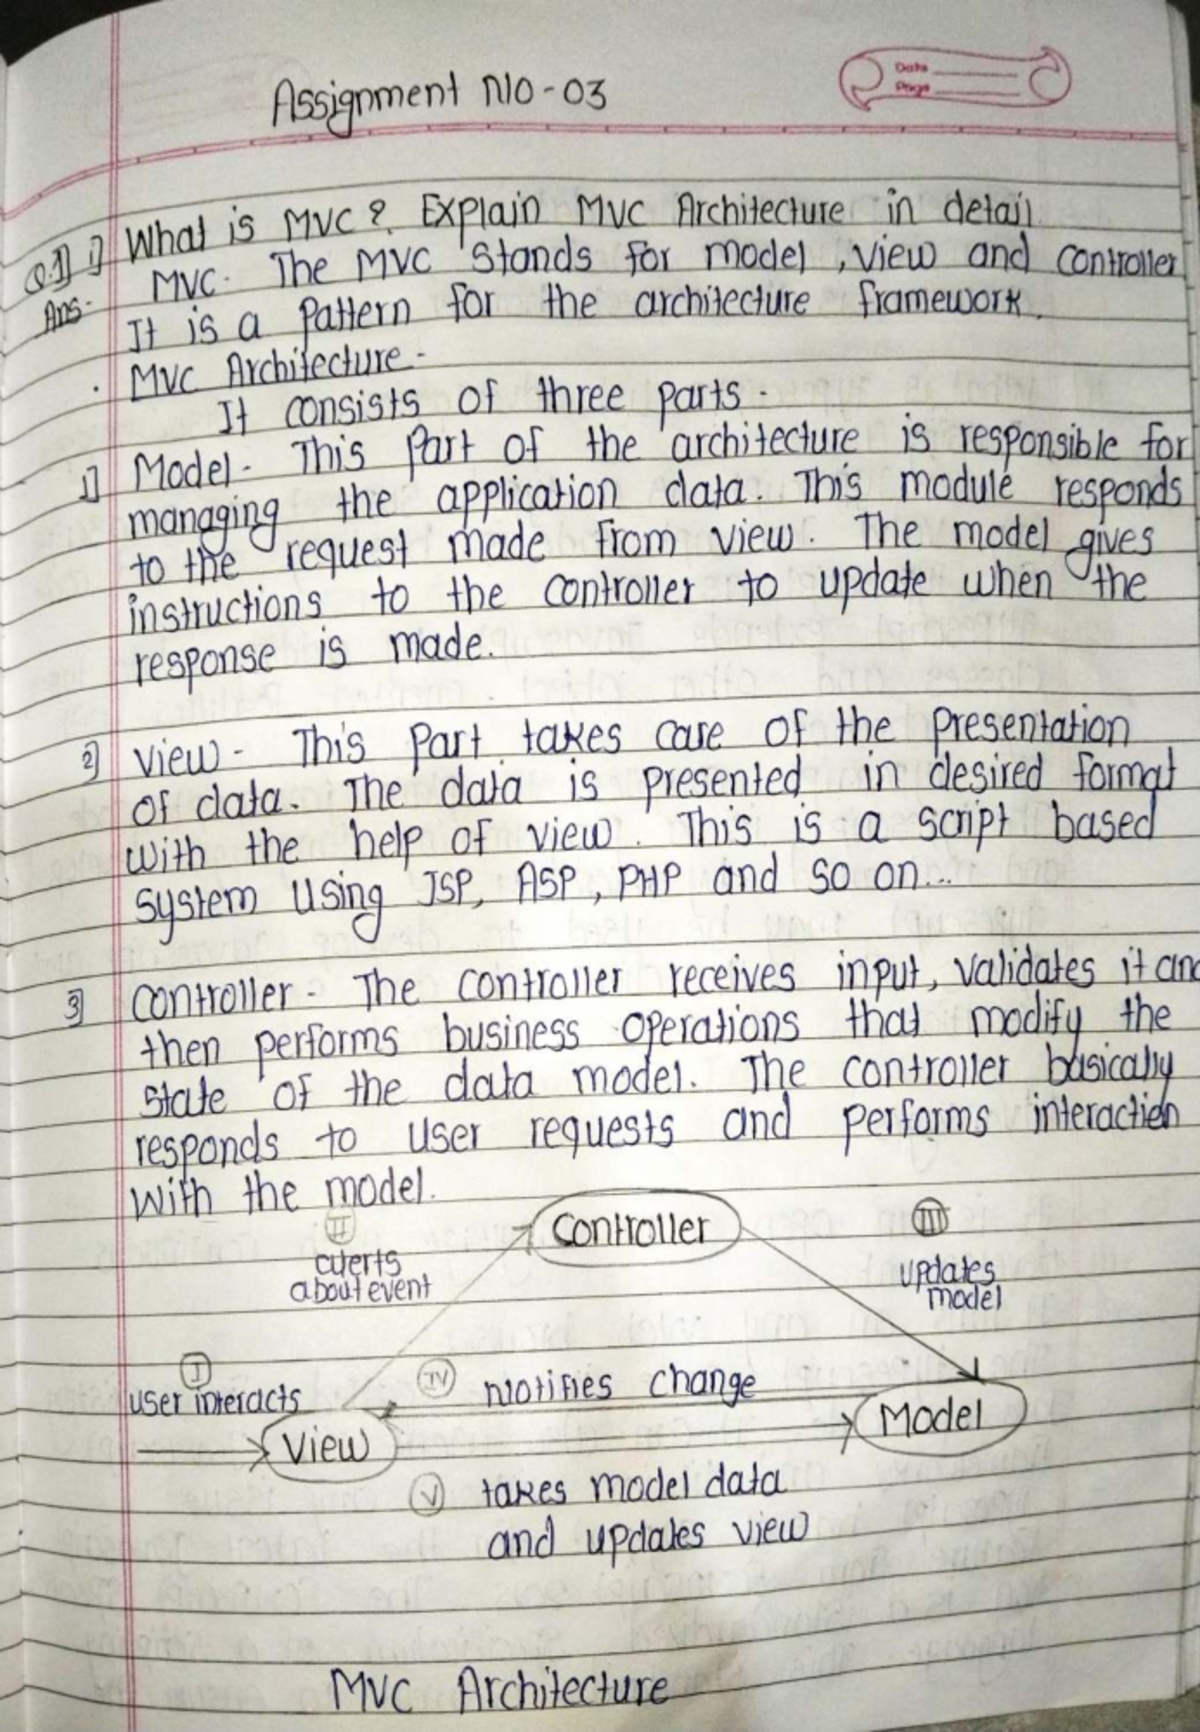 Assignment NO-03
Date
Page
Q.1] i] What is MVC? Explain MVC Architecture in detail
Ans- MVC- The MVC stands for model, view and controller
It is a pattern for the architecture framework.
. MVC Architecture-
It consists of three parts-
1] Model- This part of the architecture is responsible for
managing the application data. This module responds
to the request made from view. The model gives
instructions to the controller to update when the
response is made.
2] view- This part takes care of the presentation
of data. The data is presented in desired format
with the help of view. This is a script based
system using JSP, ASP, PHP and so on...
3] controller- The controller receives input, validates it and
then performs business operations that modify the
state of the data model. The controller basically
responds to user requests and performs interaction
with the model.
II
alerts
about event
Controller
III
updates
model
I
user interacts
IV notifies change
View
Model
V takes model data
and updates view
MVC Architecture